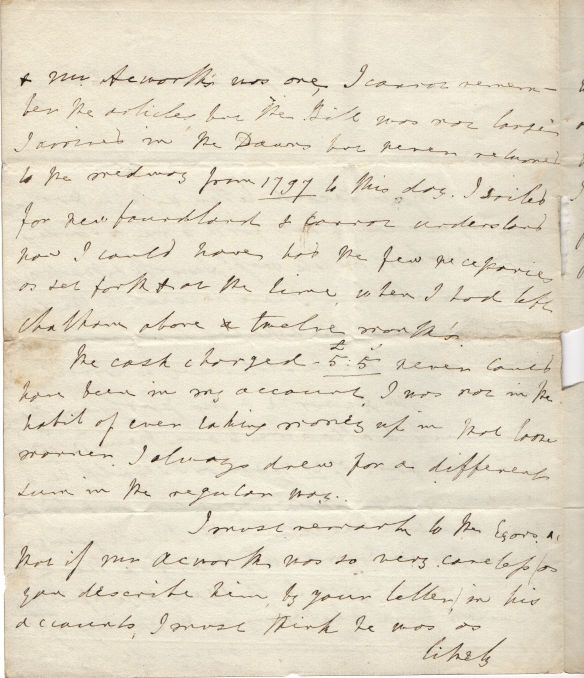 & Mr. Acworth's was one, I cannot remem-
ber the articles but the Bill was not large;
I arrived in the Downs but never returned
to the medway from 1797 to this day. I sailed
for newfoundland & cannot understand
how I could have had the few necessaries
as set forth & at the time, when I had left
Chatham above a twelve month's
The cash charged £5.5s never could
have been in my account, I was not in the
habit of ever taking money up in that loose
manner. I always drew for a different
sum in the regular way.
I must remark to the Exors.
that if mr Acworth was so very careless (as
you describe him, by your letter) in his
accounts, I must think he was as
likely